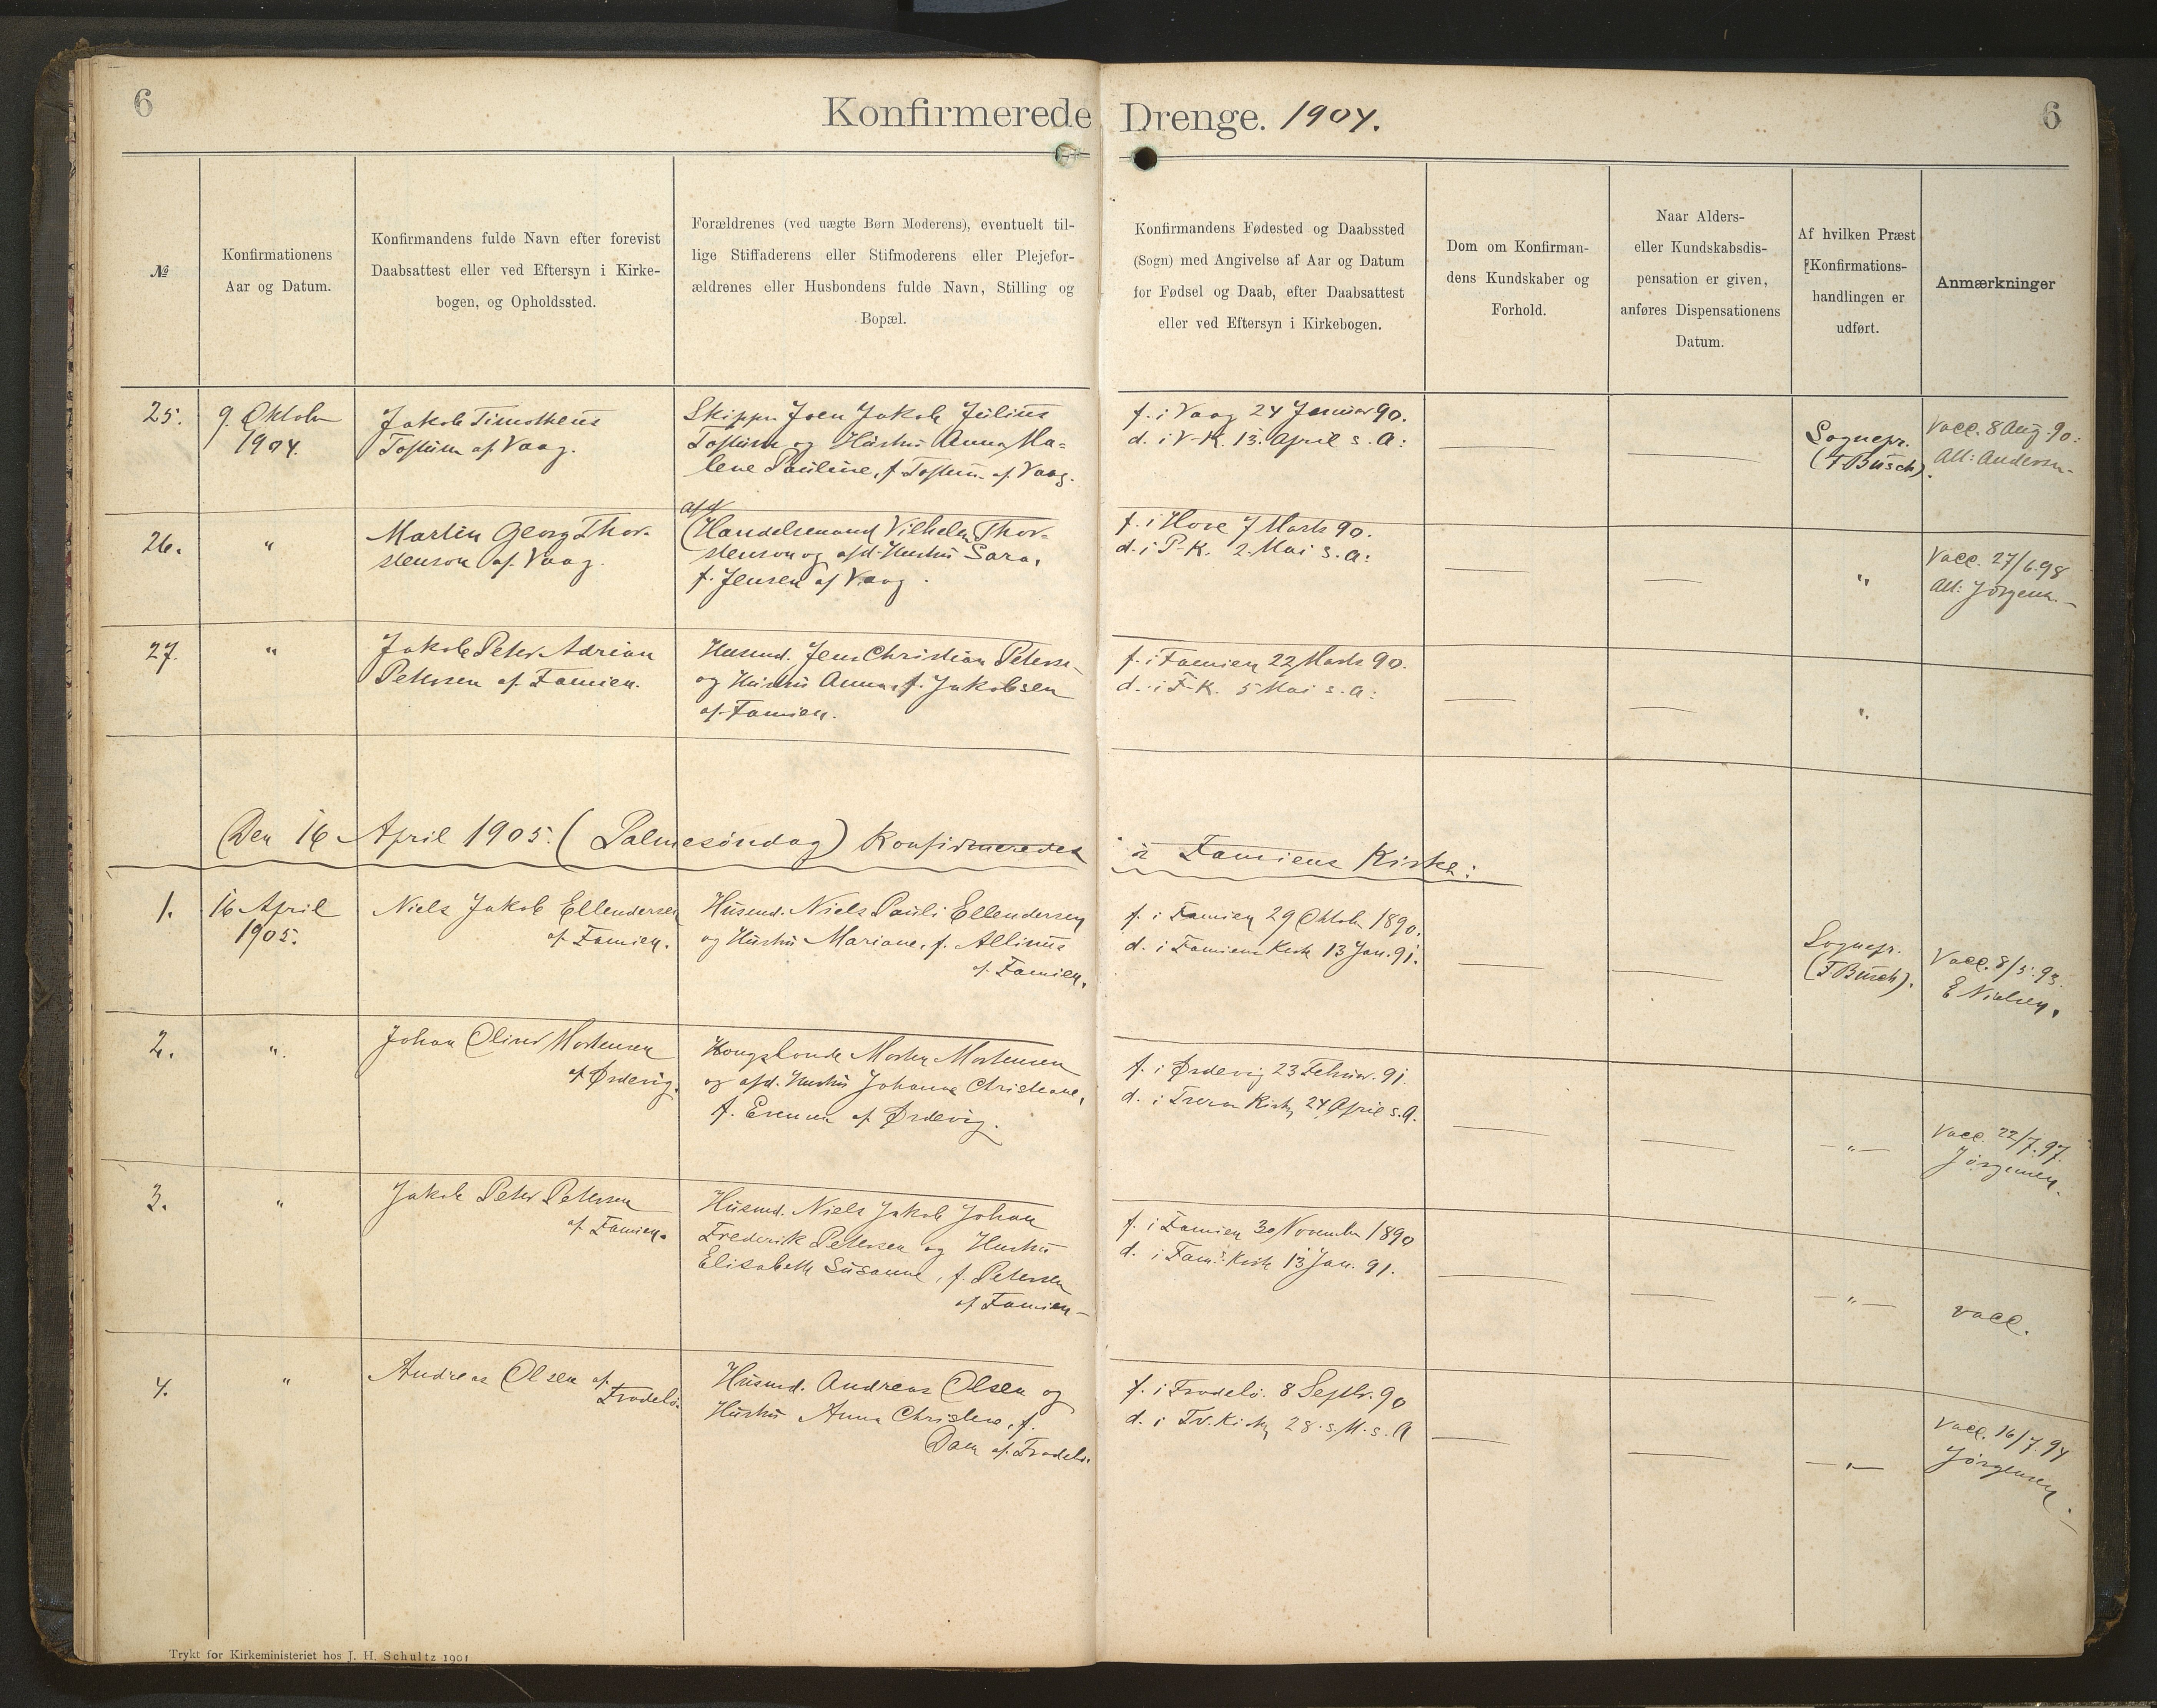 6
Konfirmerede Drenge. 1904.
6
№
Konfirmationens
Aar og Datum.
Konfirmandens fulde Navn efter forevist
Daabsattest eller ved Eftersyn i Kirke-
bogen, og Opholdssted.
Forældrenes (ved uægte Børn Moderens), eventuelt til-
lige Stiffaderens eller Stifmoderens eller Plejefor-
ældrenes eller Husbondens fulde Navn, Stilling og
Bopæl.
Konfirmandens Fødested og Daabssted
(Sogn) med Angivelse af Aar og Datum
for Fødsel og Daab, efter Daabsattest
eller ved Eftersyn i Kirkebogen.
Dom om Konfirman-
dens Kundskaber og
Forhold.
Naar Alders-
eller Kundskabsdis-
pensation er given,
anføres Dispensationens
Datum.
Af hvilken Præst
Konfirmations-
handlingen er
udført.
Anmærkninger
25.
9. Oktob
1904.
Jakob Timotheus
af Vaag.
Skipper Joen Jakob Julius
og Hustru Anna Ma-
lene Pauline, f. af Vaag.
f. i Vaag 24 Januar 90.
d. i V-K. 13. April s. A:
Sognepr.
(F Busch).
Vacc. 8 Aug. 90:
Att: Andersen
26.
"
Martin Georg Thor-
stenson af Vaag.
afd
Handelsmand Vilhelm Thor-
stenson og afd. Hustru Sara,
f. Jensen af Vaag.
f. i Hove 7 Marts 90.
d. i P-K. 2 Mai s. A:
"
Vacc. 27/6.98
Att: Jørgensen
27.
"
Jakob Peter Adrian
Petersen af Famien.
Husmd. Jens Christian Petersen
og Hustru Anna, f. Jakobsen
af Famien.
f. i Famien 22 Marts 90.
d. i F-K. 5 Mai s. A:
"
Den 16 April 1905. (Palmesöndag) Konfirmeredes i Famiens Kirke:
1.
16 April
1905.
Niels Jakob Ellendersen
af Famien.
Husmd. Niels Pauli Ellendersen
og Hustru Mariane, f. Allinus
af Famien.
f. i Famien 29 Oktob 1890.
d. i Famiens Kirk 13 Jan. 91.
Sognepr.
(F. Busch).
Vacc. 8/5.93.
E Nielsen.
2.
"
Johan Oliver Mortensen
af Ørdevig.
Kongsbonde Morten Mortensen
og afd. Hustru Johanne Christiane,
f. af Ørdevig.
f. i Ørdevig 23 Februar. 91.
d. i Kirke 24 April s. A.
"
Vacc. 22/7.97.
Jørgensen.
3.
"
Jakob Peter Petersen
af Famien.
Husmd. Niels Jakob Johan
Frederik Petersen og Hustru
Elisabeth Susanne, f. Petersen
af Famien
f. i Famien 30 November 1890
d. i Fams. Kirk 13 Jan. 91.
"
vacc.
4.
"
Andreas Olsen af
Frodebö.
Husmd. Andreas Olsen og
Hustru Anna f.
Dam af Frodebö.
f. i Frodebö. 8 Septb. 90
d. i Tv. Kirke 28. s. M. s. A
"
Vacc. 16/7.94
Jörgensen.
Trykt for Kirkeministeriet hos J. H. Schultz 1901